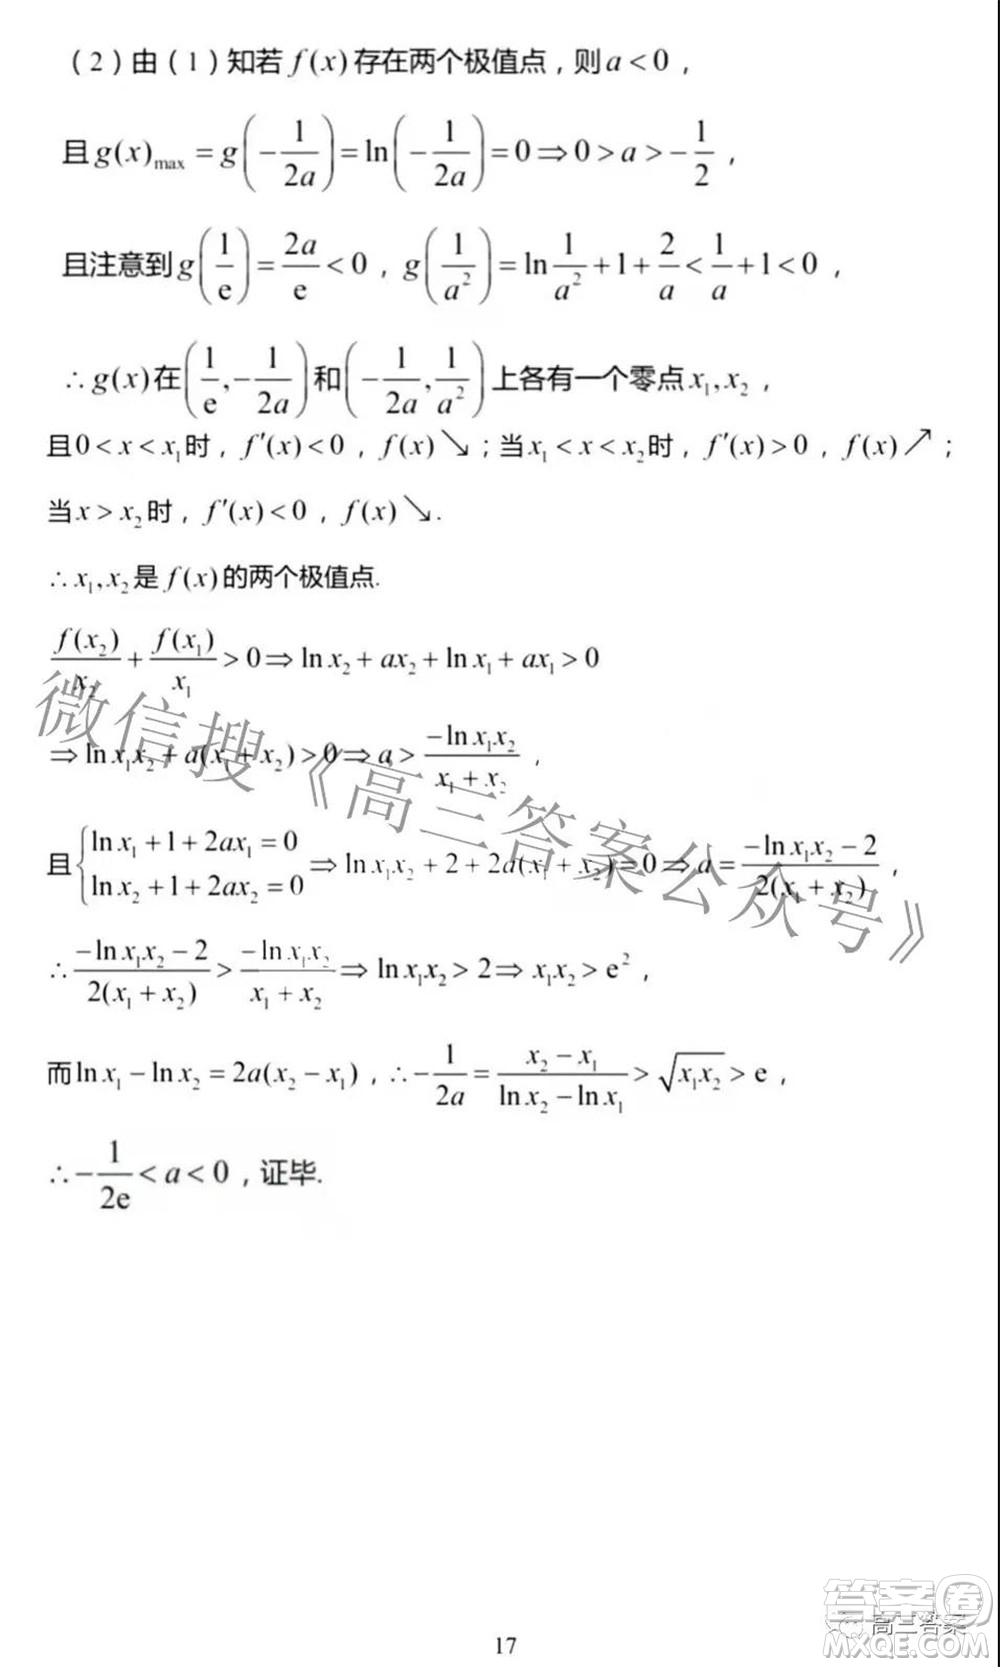 （2）由（1）知若 f(x) 存在两个极值点，则 a < 0，
且 g(x)max = g(-1/(2a)) = ln(-1/(2a)) = 0 ⇒ 0 > a > -1/2，
且注意到 g(1/e) = 2a/e < 0，g(1/a²) = ln 1/a² + 1 + 2/a < 1/a + 1 < 0，
∴ g(x) 在 (1/e, -1/(2a)) 和 (-1/(2a), 1/a²) 上各有一个零点 x₁, x₂，
且 0 < x < x₁ 时，f′(x) < 0，f(x) ↘；当 x₁ < x < x₂ 时，f′(x) > 0，f(x) ↗；
当 x > x₂ 时，f′(x) < 0，f(x) ↘.
∴ x₁, x₂ 是 f(x) 的两个极值点.
f(x₂)/x₂ + f(x₁)/x₁ > 0 ⇒ ln x₂ + ax₂ + ln x₁ + ax₁ > 0
⇒ ln x₁x₂ + a(x₁ + x₂) > 0 ⇒ a > (-ln x₁x₂)/(x₁ + x₂)，
且 { ln x₁ + 1 + 2ax₁ = 0
ln x₂ + 1 + 2ax₂ = 0 ⇒ ln x₁x₂ + 2 + 2a(x₁ + x₂) = 0 ⇒ a = (-ln x₁x₂ - 2)/(2(x₁ + x₂))，
∴ (-ln x₁x₂ - 2)/(2(x₁ + x₂)) > (-ln x₁x₂)/(x₁ + x₂) ⇒ ln x₁x₂ > 2 ⇒ x₁x₂ > e²，
而 ln x₁ - ln x₂ = 2a(x₂ - x₁)，∴ -1/(2a) = (x₂ - x₁)/(ln x₂ - ln x₁) > √(x₁x₂) > e，
∴ -1/(2e) < a < 0，证毕.
微信搜《高三答案公众号》
答案圈
高三答案
MXQE.COM
17